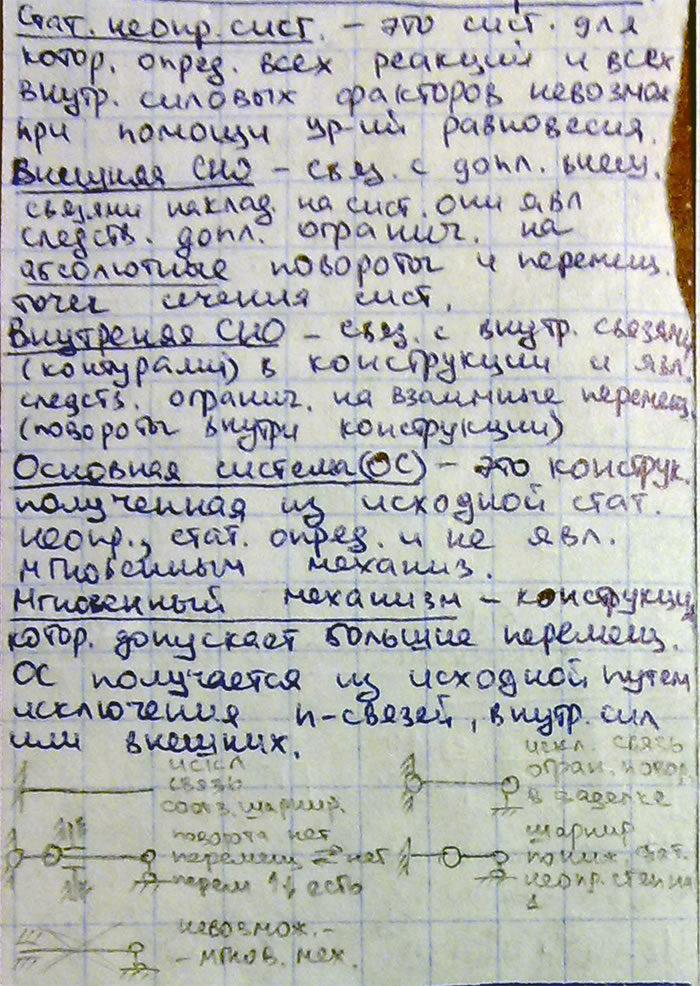 Стат. неопр. сист. – это сист. для
котор. опред. всех реакций и всех
внутр. силовых факторов невозмож
при помощи ур-ий равновесия.
Внешняя СНО – связ. с допл. внеш.
связями наклад. на сист. они явл
следств. допл. огранич. на
абсолютные повороты и перемещ.
точек сечения сист.
Внутреняя СНО – связ. с внутр. связями
(контурами) в конструкции и явл.
следств. огранич. на взаимные перемещ.
(повороты внутри конструкции)
Основная система(ОС) – это конструк.
полученная из исходной стат.
неопр., стат. опред. и не явл.
мгновенным механиз.
Мгновенный механизм – конструкци
котор. допускает большие перемещ.
ОС получается из исходной путем
исключения n-связей, внутр. сил
или внешних.
искл
связь
соотв. шарнир.
искл. связь
огран. повор.
в заделке
поворота нет
перемещ ⇄ нет
перем ↑↓ есть
шарнир
пониж. стат.
неопр. степ на
1
невозмож. –
– мгнов. мех.